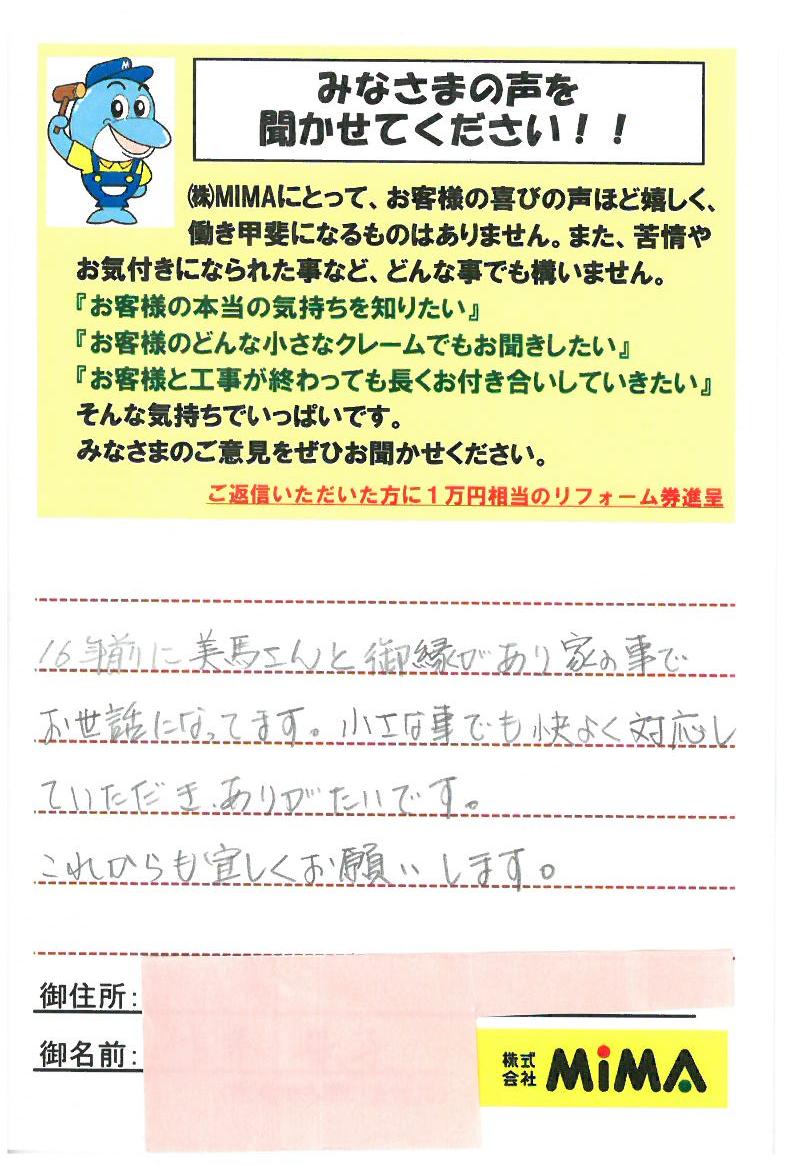 みなさまの声を
聞かせてください！！
㈱MIMAにとって、お客様の喜びの声ほど嬉しく、
働き甲斐になるものはありません。また、苦情や
お気付きになられた事など、どんな事でも構いません。
『お客様の本当の気持ちを知りたい』
『お客様のどんな小さなクレームでもお聞きしたい』
『お客様と工事が終わっても長くお付き合いしていきたい』
そんな気持ちでいっぱいです。
みなさまのご意見をぜひお聞かせください。
ご返信いただいた方に１万円相当のリフォーム券進呈
16年前に美馬さんと御縁があり家の事で
お世話になってます。小さな事でも快よく対応し
ていただき、ありがたいです。
これからも宜しくお願いします。
御住所：
御名前：
株式
会社 MiMA
M